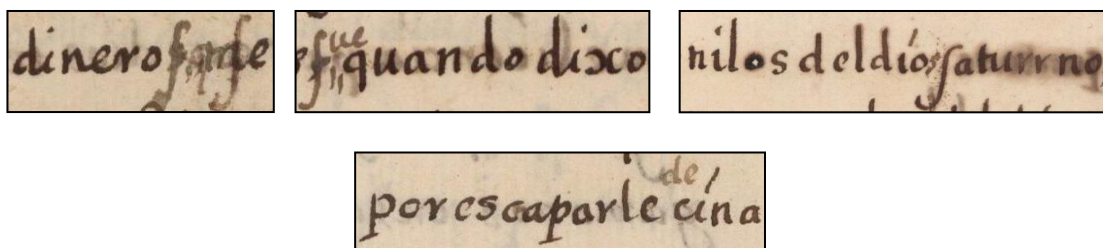 dinero
ue
quando dixo
nilos del dío saturrno
de
por escaparle cína